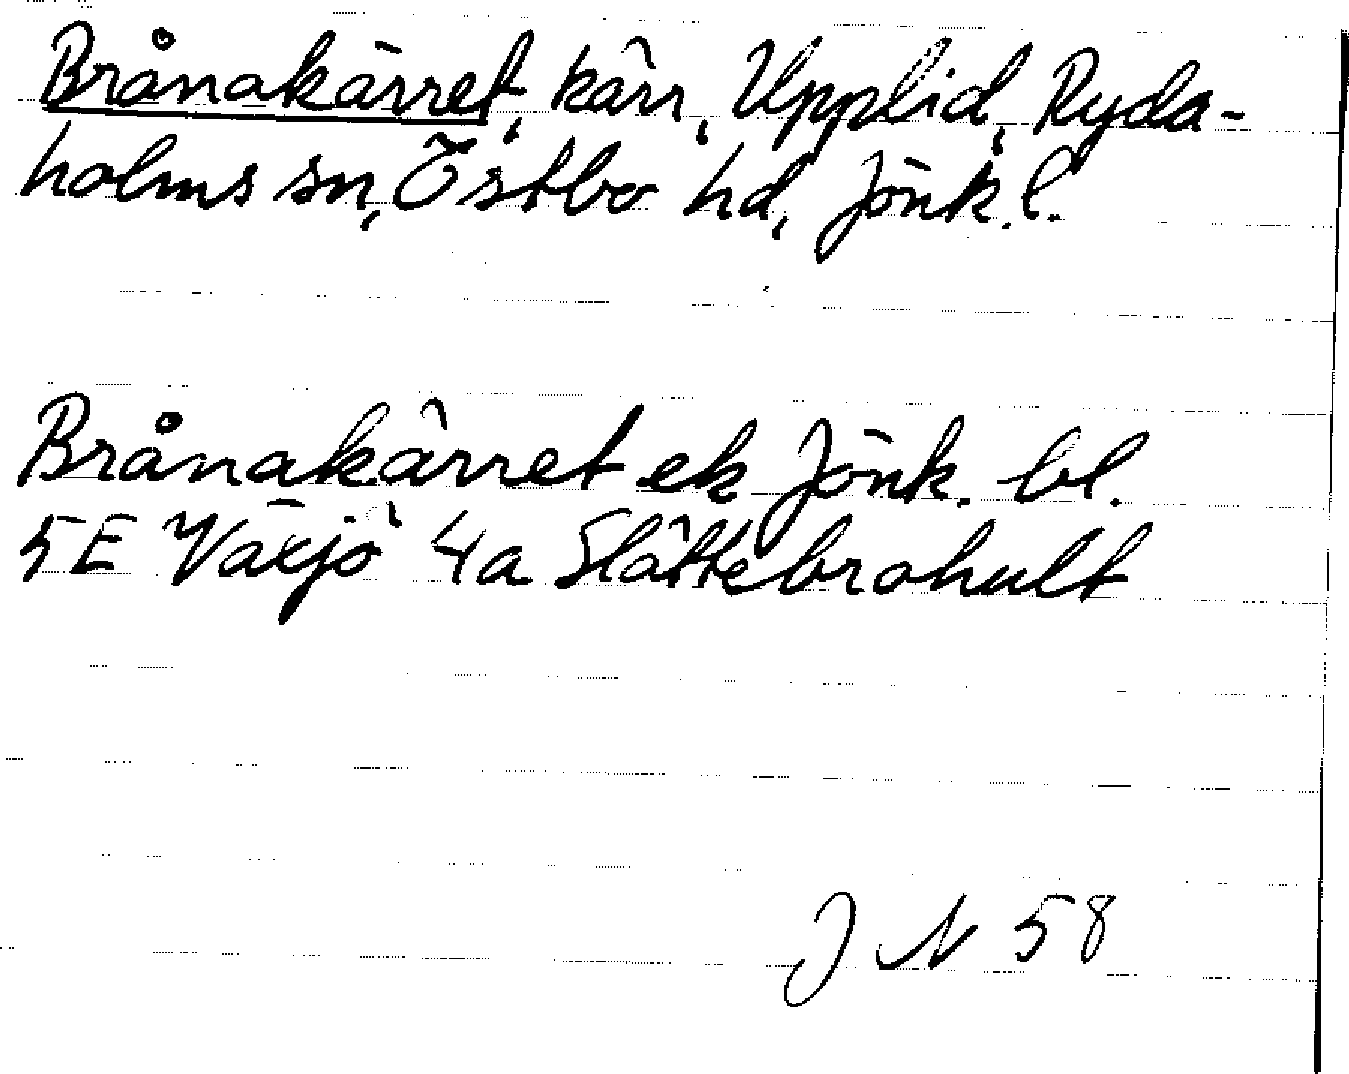 Brånakärret, kärr, Upplid, Ryda-
holms sn, Östbo hd, Jönk. l.
Brånakärret ek Jönk. bl.
5E Växjö 4a Slättebrohult
J N 58